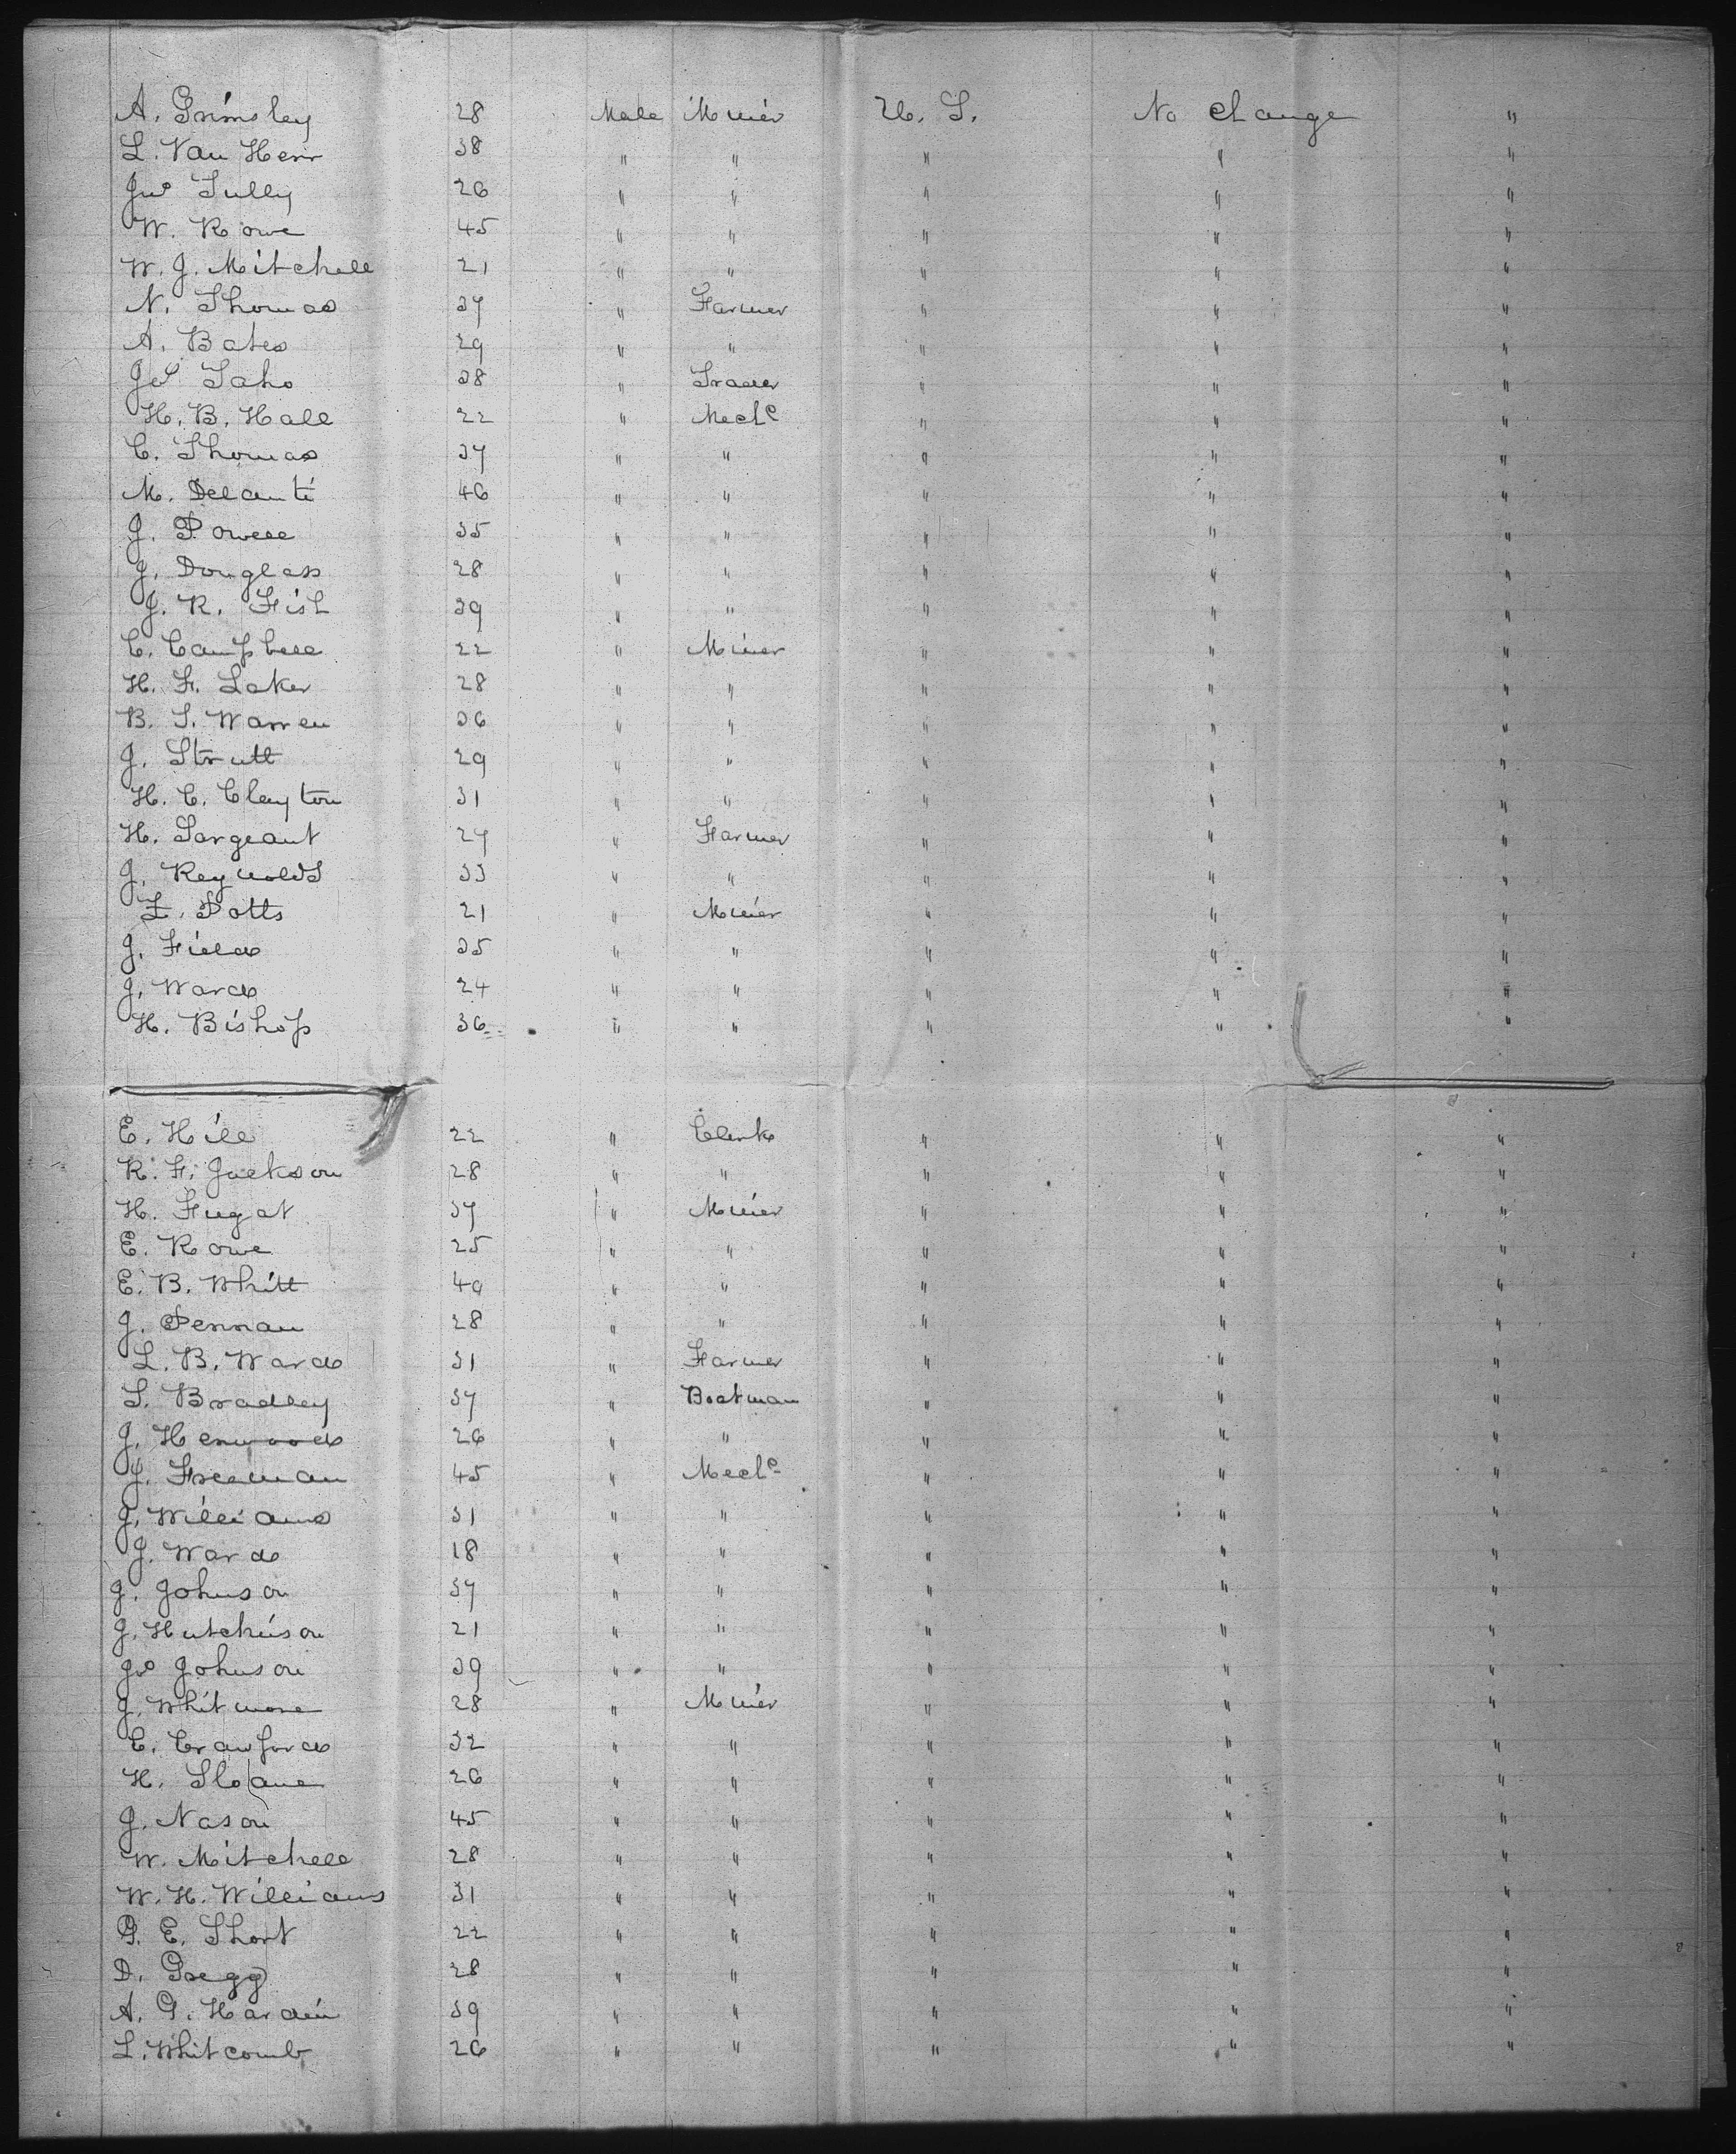 A. Grimsley 28 Male Miner U. S. No change "
L. Van Horn 38 " " " " "
Jno Tully 26 " " " " "
W. Rowe 45 " " " " "
W. J. Mitchell 21 " " " " "
N. Thomas 37 " Farmer " " "
A. Bates 29 " " " " "
38 " Trader " " "
H. B. Hall 22 " Mech^c " " "
C. Thomas 37 " " " " "
M. Delanti 46 " " " " "
J. Powell 35 " " " " "
J. Douglass 28 " " " " "
J. R. Fish 39 " " " " "
C. Campbell 22 " Miner " " "
H. F. Laker 28 " " " " "
B. S. Warren 36 " " " " "
J. Strutt 29 " " " " "
H. C. Clayton 31 " " " " "
H. Sargeant 27 " Farmer " " "
J. Reynolds 33 " " " " "
Z. Potts 21 " Miner " " "
J. Field 35 " " " " "
J. Ward 24 " " " " "
H. Bishop 36 " " " " "
E. Hill 22 " Clerk " " "
R. F. Jackson 28 " " " " "
H. Fugat 37 " Miner " " "
E. Rowe 25 " " " " "
E. B. Whitt 40 " " " " "
J. Pennan 28 " " " " "
L. B. Ward 31 " Farmer " " "
S. Bradley 37 " Boatman " " "
J. Henwood 26 " " " " "
J. Freeman 45 " Mech^c " " "
J. Williams 31 " " " " "
J. Ward 18 " " " " "
J. Johnson 37 " " " " "
J. Hutchinson 21 " " " " "
Jno Johnson 39 " " " " "
J. Whitmore 28 " Miner " " "
C. Crawford 32 " " " " "
H. Sloane 26 " " " " "
J. Nason 45 " " " " "
W. Mitchell 28 " " " " "
W. H. Williams 31 " " " " "
G. E. Short 22 " " " " "
D. Gregg 28 " " " " "
A. G. Hardin 39 " " " " "
L. Whitcomb 26 " " " " "